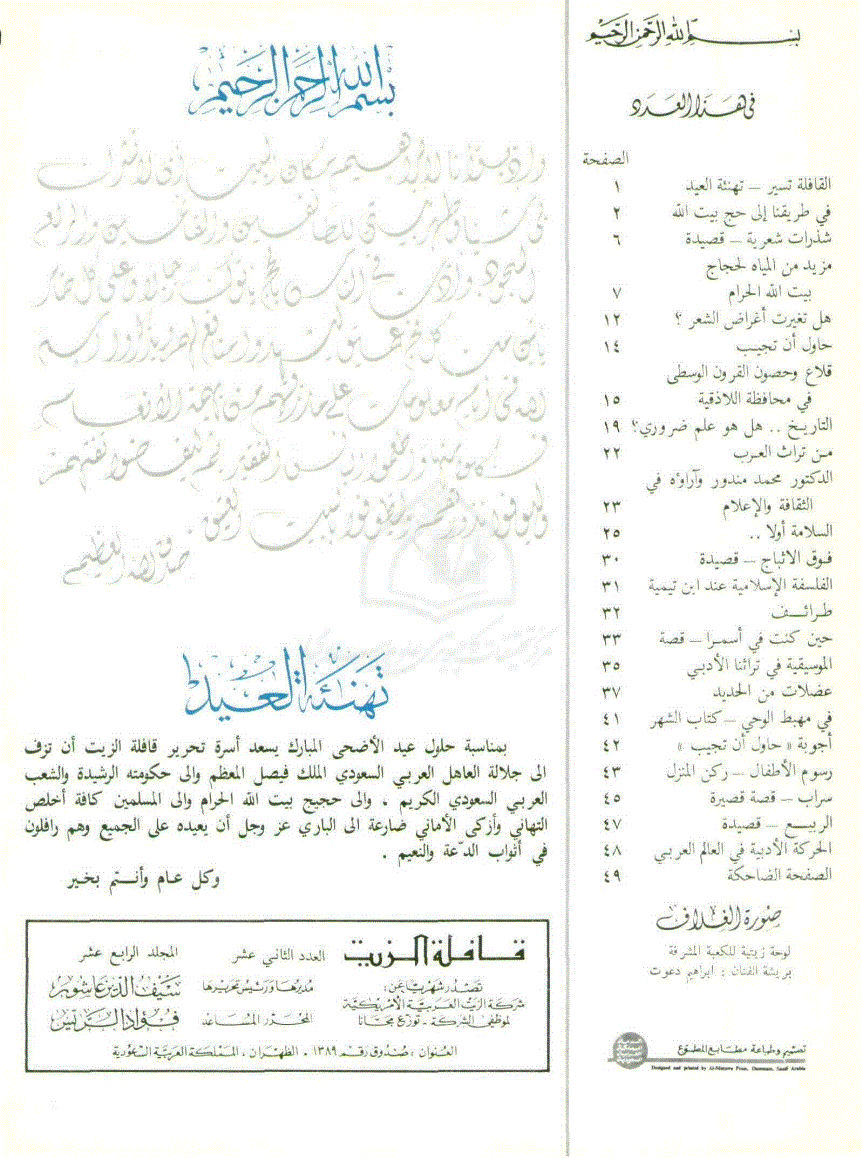 بسم الله الرحمن الرحيم
في هذا العدد
الصفحة
القافلة تسير – تهنئة العيد ١
في طريقنا إلى حج بيت الله ٢
شذرات شعرية – قصيدة ٦
مزيد من المياه لحجاج
بيت الله الحرام ٧
هل تغيرت أغراض الشعر ؟ ١٢
حاول أن تجيب ١٤
قلاع وحصون القرون الوسطى
في محافظة اللاذقية ١٥
التاريخ .. هل هو علم ضروري؟ ١٩
من تراث العرب ٢٢
الدكتور محمد مندور وآراؤه في
الثقافة والإعلام ٢٣
السلامة أولا .. ٢٥
فوق الاثباج – قصيدة ٣٠
الفلسفة الإسلامية عند ابن تيمية ٣١
طرائف ٣٢
حين كنت في أسمرا – قصة ٣٣
الموسيقية في تراثنا الأدبي ٣٥
عضلات من الحديد ٣٧
في مهبط الوحي – كتاب الشهر ٤١
أجوبة « حاول أن تجيب » ٤٢
رسوم الأطفال – ركن المنزل ٤٣
سراب – قصة قصيرة ٤٥
الربيع – قصيدة ٤٧
الحركة الأدبية في العالم العربي ٤٨
الصفحة الضاحكة ٤٩
صورة الغلاف
لوحة زيتية للكعبة المشرفة
بريشة الفنان : ابراهيم دعوت
تصميم وطباعة مطابع المطوع
Designed and printed by Al-Mutawa Press, Dammam, Saudi Arabia
بسم الله الرحمن الرحيم
واذ بوأنا لابراهيم مكان البيت أن لا تشرك
بي شيئا وطهر بيتي للطائفين والقائمين والركع
السجود وأذن في الناس بالحج يأتوك رجالا وعلى كل ضامر
يأتين من كل فج عميق ليشهدوا منافع لهم ويذكروا اسم
الله في أيام معلومات على ما رزقهم من بهيمة الأنعام
فكلوا منها وأطعموا البائس الفقير ثم ليقضوا تفثهم
وليوفوا نذورهم وليطوفوا بالبيت العتيق
صدق الله العظيم
تهنئة العيد
بمناسبة حلول عيد الأضحى المبارك يسعد أسرة تحرير قافلة الزيت أن تزف
الى جلالة العاهل العربي السعودي الملك فيصل المعظم والى حكومته الرشيدة والشعب
العربي السعودي الكريم . والى حجيج بيت الله الحرام والى المسلمين كافة أخلص
التهاني وأزكى الأماني ضارعة الى الباري عز وجل أن يعيده على الجميع وهم رافلون
في أثواب الدعة والنعيم .
وكل عام وأنتم بخير
قافلة الزيت العدد الثاني عشر المجلد الرابع عشر
تصدر شهريا عن:
شركة الزيت العربية الأمريكية
لموظفي الشركة - توزع مجانا
مديرها ورئيس تحريرها سيف الدين عاشور
المحرر المساعد فؤاد الريس
العنوان : صندوق رقم ١٣٨٩ . الظهران ، المملكة العربية السعودية